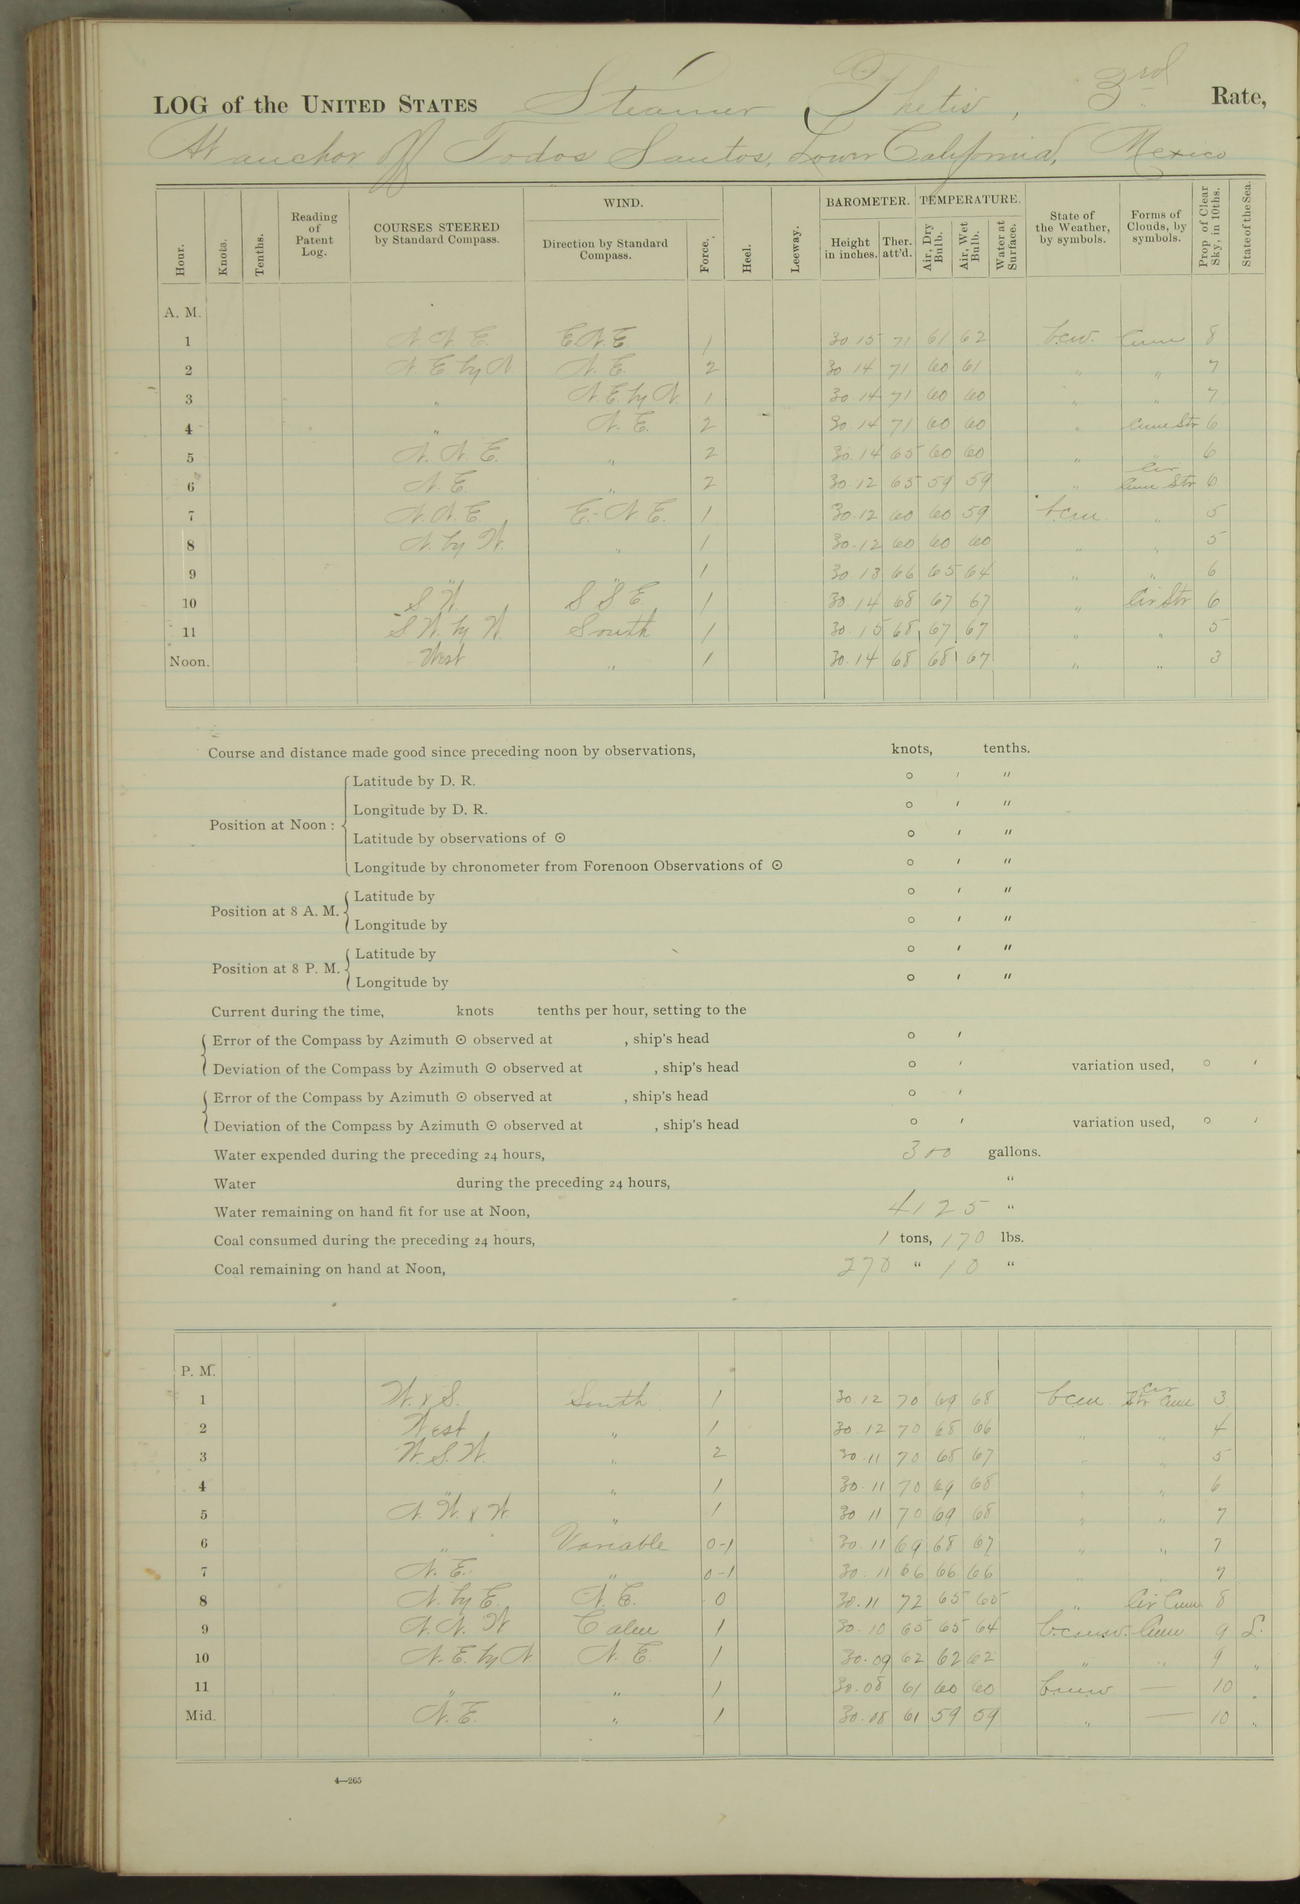 LOG of the UNITED STATES Steamer Thetis, 3rd Rate,
At anchor off Todos Santos, Lower California, Mexico
Hour. Knots. Tenths. Reading of Patent Log. COURSES STEERED by Standard Compass. WIND. Direction by Standard Compass. Force. Heel. Leeway. BAROMETER. Height in inches. Ther. att'd. TEMPERATURE. Air, Dry Bulb. Air, Wet Bulb. Water at Surface. State of the Weather, by symbols. Forms of Clouds, by symbols. Prop of Clear Sky, in 10ths. State of the Sea.
A. M.
1 N N E E N E 1 30 15 71 61 62 b.c.w. Cum 8
2 N E by N N. E. 2 30 14 71 60 61 " " 7
3 " N E by N 1 30 14 71 60 60 " " 7
4 " N. E. 2 30 14 71 60 60 " Cum Str 6
5 N. N. E. " 2 30.14 65 60 60 " " 6
6 N. E. " 2 30.12 65 59 59 " Cir Cum Str 6
7 N. N. E. E. N. E. 1 30.12 60 60 59 b.c.m. " 5
8 N. by W. " 1 30.12 60 60 60 " " 5
9 " " 1 30 13 66 65 64 " " 6
10 S W S S E 1 30.14 68 67 67 " Cir Str 6
11 S W. by W South 1 30.15 68 67 67 " " 5
Noon. West " 1 30.14 68 68 67 " " 3
Course and distance made good since preceding noon by observations, knots, tenths.
Position at Noon :
Latitude by D. R. ° ′ ″
Longitude by D. R. ° ′ ″
Latitude by observations of ☉ ° ′ ″
Longitude by chronometer from Forenoon Observations of ☉ ° ′ ″
Position at 8 A. M.
Latitude by ° ′ ″
Longitude by ° ′ ″
Position at 8 P. M.
Latitude by ° ′ ″
Longitude by ° ′ ″
Current during the time, knots tenths per hour, setting to the
Error of the Compass by Azimuth ☉ observed at , ship's head ° ′
Deviation of the Compass by Azimuth ☉ observed at , ship's head ° ′ variation used, ° ′
Error of the Compass by Azimuth ☉ observed at , ship's head ° ′
Deviation of the Compass by Azimuth ☉ observed at , ship's head ° ′ variation used, ° ′
Water expended during the preceding 24 hours, 300 gallons.
Water during the preceding 24 hours, "
Water remaining on hand fit for use at Noon, 4125 "
Coal consumed during the preceding 24 hours, 1 tons, 170 lbs.
Coal remaining on hand at Noon, 270 " 10 "
P. M.
1 W. x S. South 1 30.12 70 69 68 b c m Cir Str Cum 3
2 West " 1 30.12 70 68 66 " " 4
3 W. S. W. " 2 30.11 70 68 67 " " 5
4 " " 1 30.11 70 69 68 " " 6
5 N. W. x W. " 1 30 11 70 69 68 " " 7
6 " Variable 0-1 30.11 69 68 67 " " 7
7 N. E. " 0-1 30.11 66 66 66 " " 7
8 N. by E. N. E. 0 30.11 72 65 65 " Cir Cum 8
9 N. N. W Calm 1 30.10 65 65 64 Cum 9 S.
10 N. E. by N N. E. 1 30.09 62 62 62 " " 9 "
11 " " 1 30.08 61 60 60 b.m.w — 10 "
Mid. N. E. " 1 30.08 61 59 59 " — 10 "
4—265